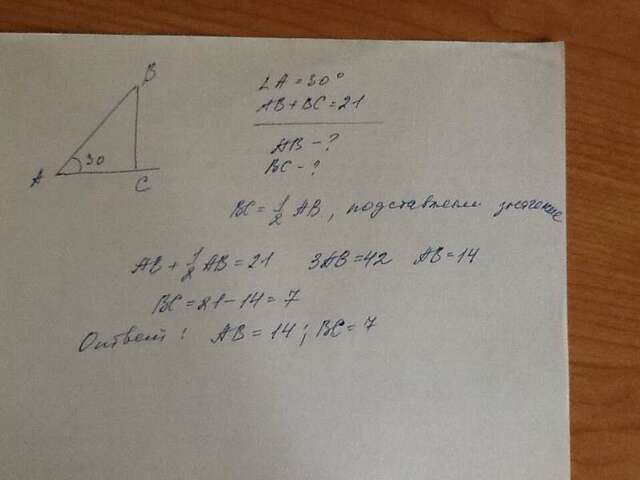 B
30
A
C
∠A = 30°
AB + BC = 21
AB - ?
BC - ?
BC = 1/2 AB, подставляем значение
AB + 1/2 AB = 21 3AB = 42 AB = 14
BC = 21 - 14 = 7
Ответ: AB = 14; BC = 7